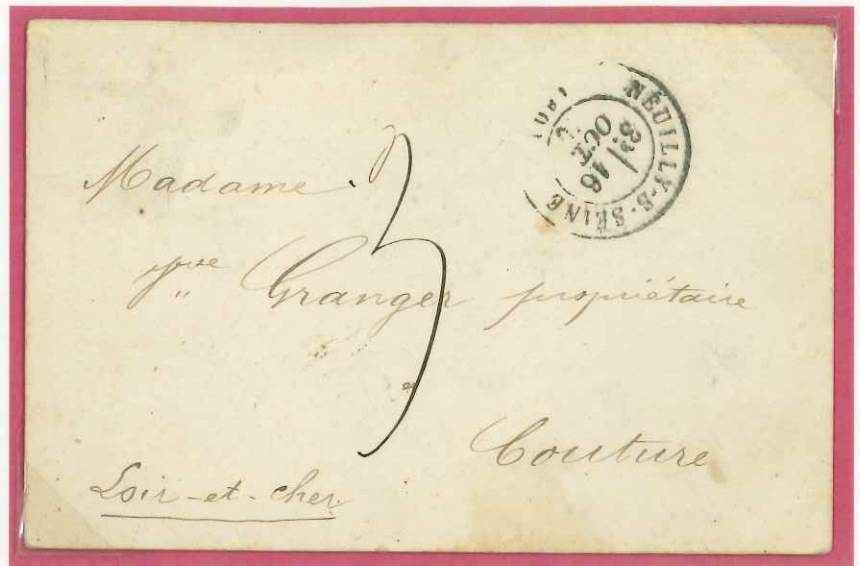 NEUILLY-S-SEINE
3E
16
OCT.
Madame
3
Vve Granger propriétaire
Couture
Loir-et-cher